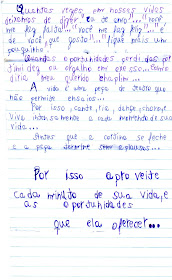 Quantas vezes em nossas vidas
deixamos de dizer "eu te amo"... "você
me faz falta"... "você me faz feliz"... é
de você que gosto"... "fique mais um
pouquinho"
Quantas oportunidades perdidas por
timidez ou orgulho em expresso... como
diria meu querido Chaplin...
A vida é uma peça de teatro que
não permite ensaios...
Por isso, cante, ria, dance, chore,
Viva intensamente cada momento de sua
vida...
Antes que a cortina se feche
e a peça termine sem aplausos...
Por isso aproveite
cada minuto de sua vida, e
as oportunidades
que ela oferecer...